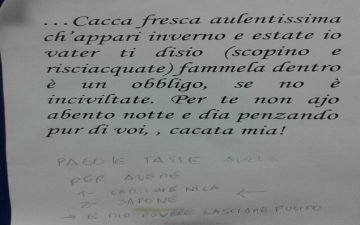 ...Cacca fresca aulentissima
ch'appari inverno e estate io
vater ti disio (scopino e
risciacquate) fammela dentro
è un obbligo, se no è
inciviltate. Per te non ajo
abento notte e dia penzando
pur di voi, , cacata mia!
PAGO LE TASSE ANCHE
PER AVERE
1- CARTA IGIENICA
2- SAPONE ←
→ È MIO DOVERE LASCIARE PULITO